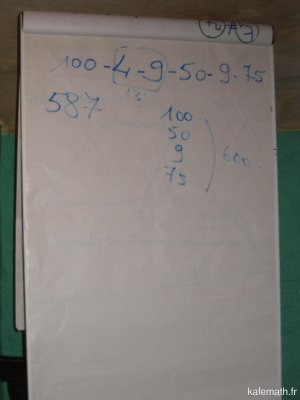 100-4-9-50-9-75
13
587
100
50
9
75
600
kafemath.fr